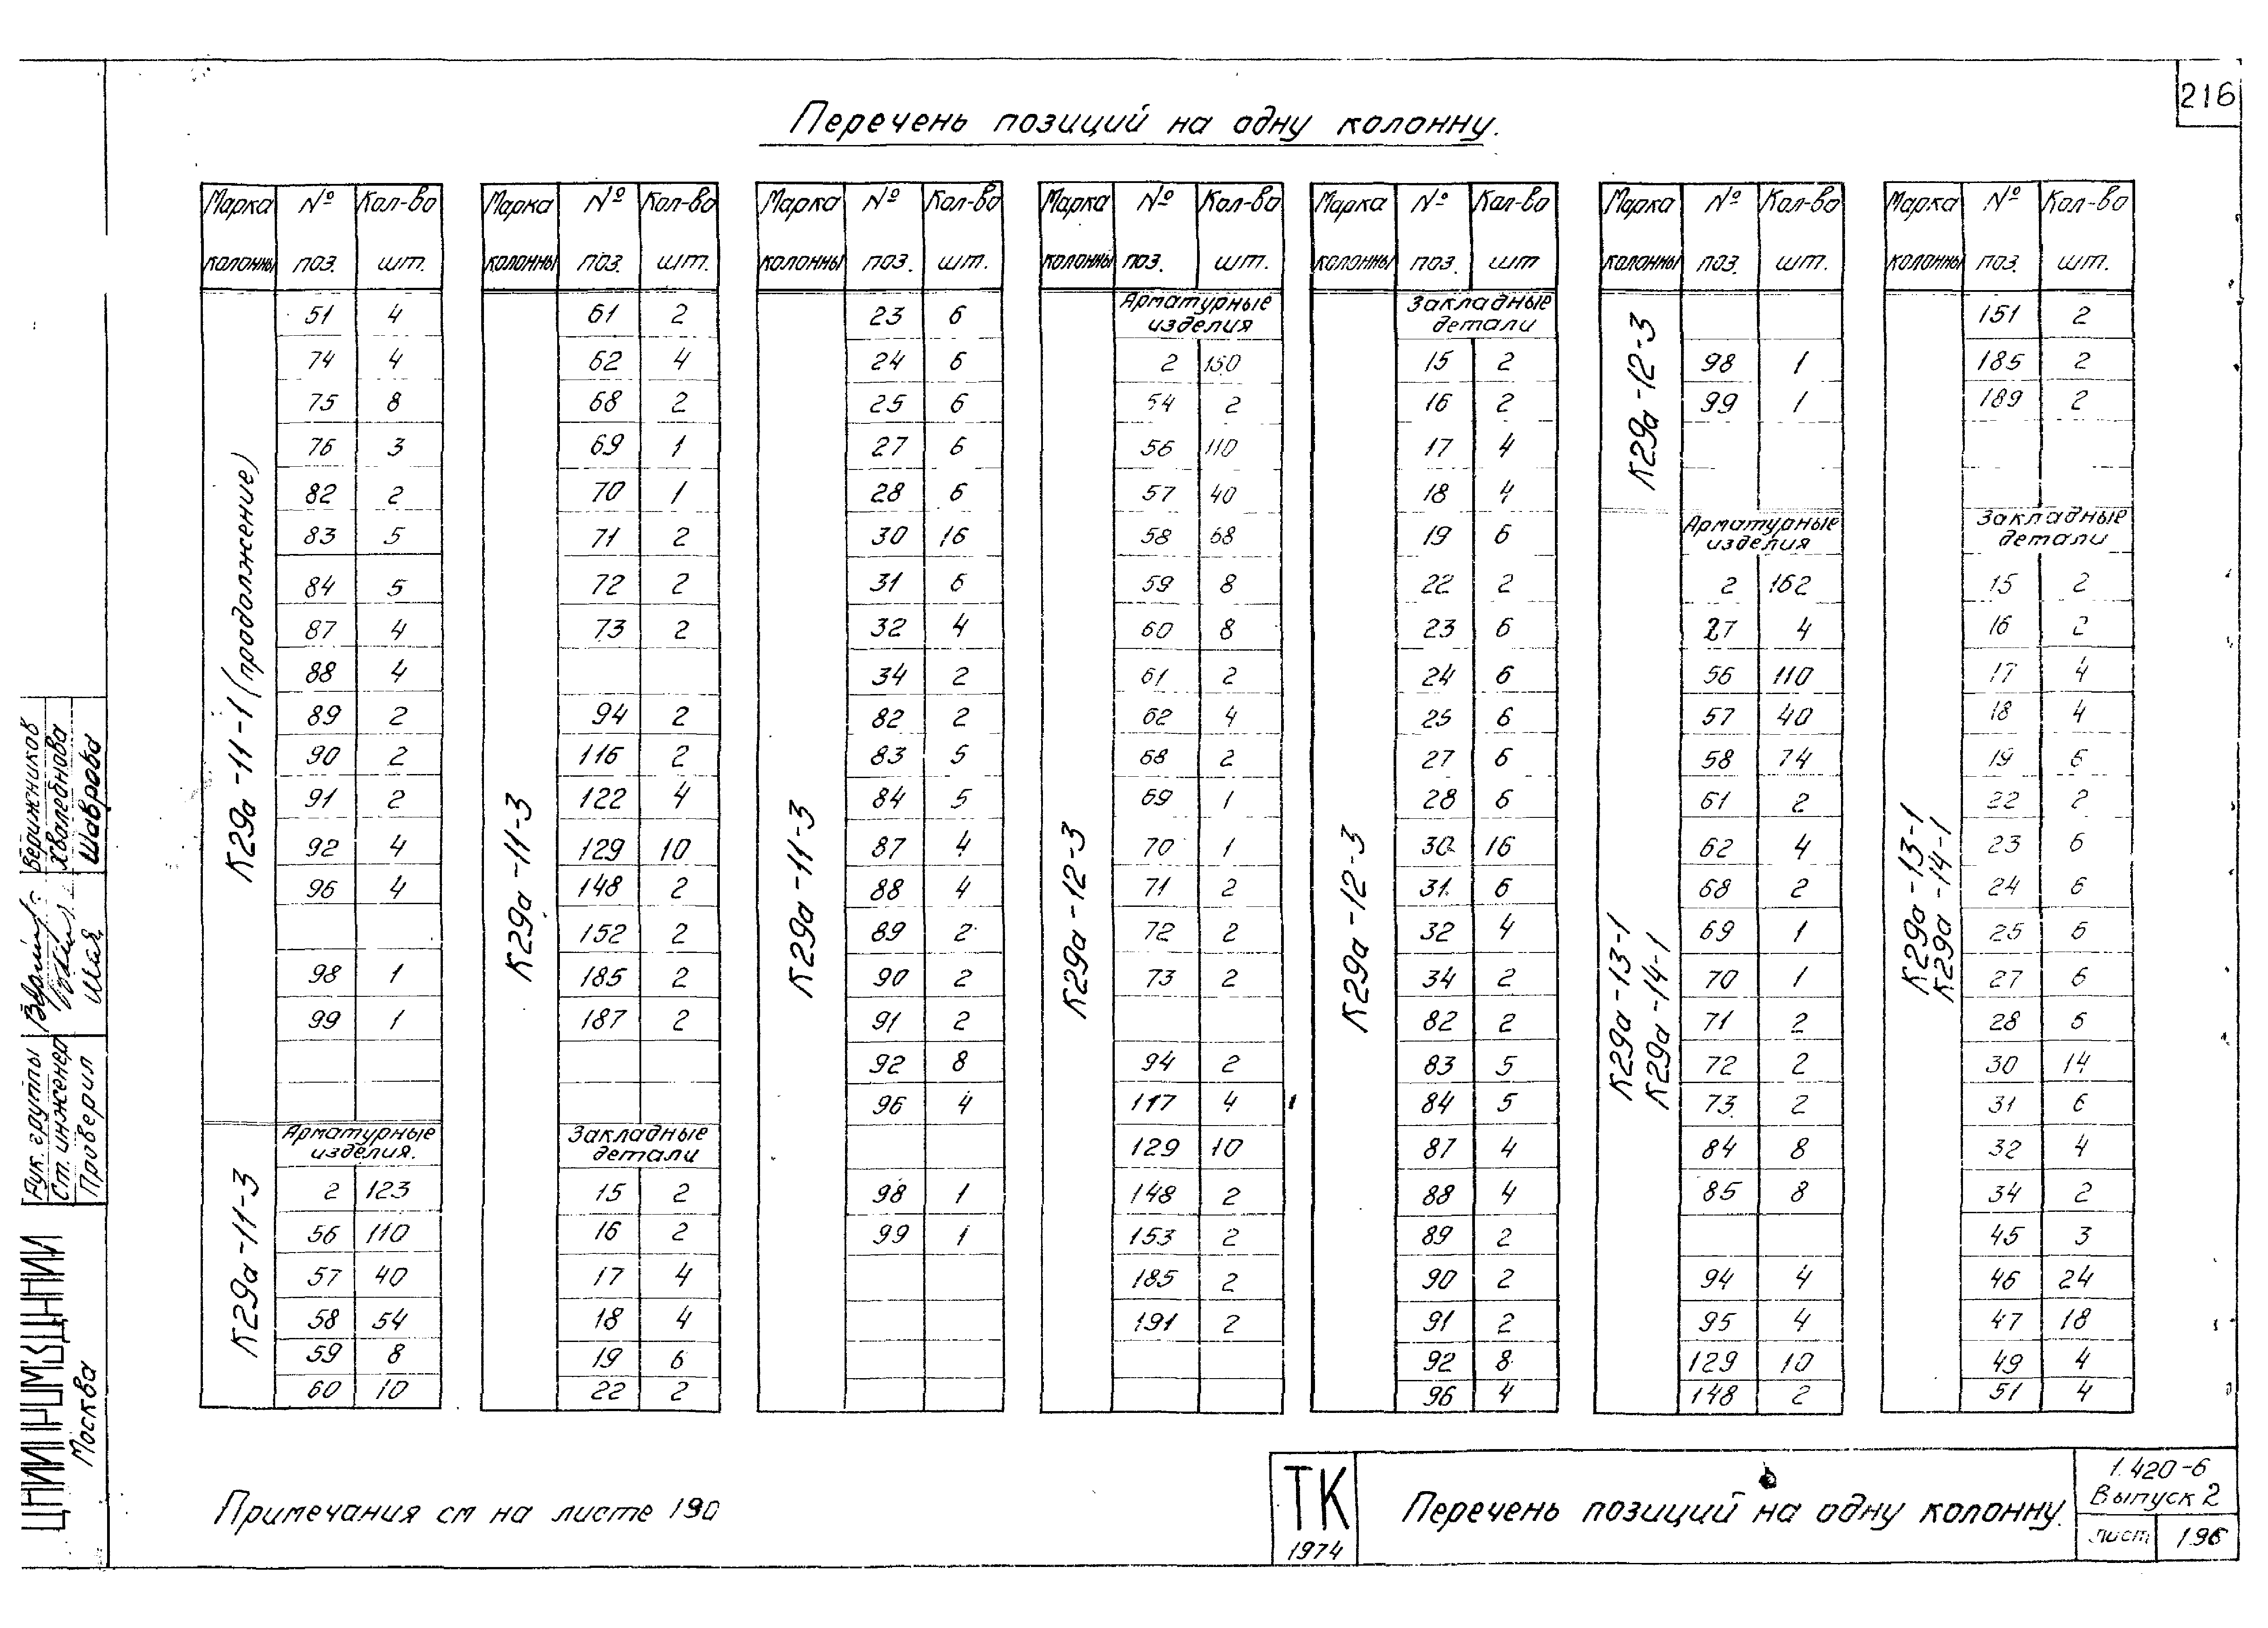 216
Перечень позиций на одну колонну.
Марка колонны № поз. Кол-во шт.
К29а-11-1 (продолжение)
51 4
74 4
75 8
76 3
82 2
83 5
84 5
87 4
88 4
89 2
90 2
91 2
92 4
96 4
98 1
99 1
К29а-11-3
Арматурные
изделия.
2 123
56 110
57 40
58 54
59 8
60 10
Марка колонны № поз. Кол-во шт.
К29а-11-3
61 2
62 4
68 2
69 1
70 1
71 2
72 2
73 2
94 2
116 2
122 4
129 10
148 2
152 2
185 2
187 2
Закладные
детали
15 2
16 2
17 4
18 4
19 6
22 2
Марка колонны № поз. Кол-во шт.
К29а-11-3
23 6
24 6
25 6
27 6
28 6
30 16
31 6
32 4
34 2
82 2
83 5
84 5
87 4
88 4
89 2
90 2
91 2
92 8
96 4
98 1
99 1
Марка колонны № поз. Кол-во шт.
К29а-12-3
Арматурные
изделия
2 150
54 2
56 110
57 40
58 68
59 8
60 8
61 2
62 4
68 2
69 1
70 1
71 2
72 2
73 2
94 2
117 4
129 10
148 2
153 2
185 2
191 2
Марка колонны № поз. Кол-во шт
К29а-12-3
Закладные
детали
15 2
16 2
17 4
18 4
19 6
22 2
23 6
24 6
25 6
27 6
28 6
30 16
31 6
32 4
34 2
82 2
83 5
84 5
87 4
88 4
89 2
90 2
91 2
92 8
96 4
Марка колонны № поз. Кол-во шт.
К29а-12-3
98 1
99 1
К29а-13-1
К29а-14-1
Арматурные
изделия
2 162
27 4
56 110
57 40
58 74
61 2
62 4
68 2
69 1
70 1
71 2
72 2
73 2
84 8
85 8
94 4
95 4
129 10
148 2
Марка колонны № поз. Кол-во шт.
К29а-13-1
К29а-14-1
151 2
185 2
189 2
Закладные
детали
15 2
16 2
17 4
18 4
19 6
22 2
23 6
24 6
25 6
27 6
28 6
30 14
31 6
32 4
34 2
45 3
46 24
47 18
49 4
51 4
Рук. группы Вершинников
Ст. инженер
Проверил Шаврова
Москва
Примечания см на листе 190
ТК
1974
Перечень позиций на одну колонну.
1.420-6
Выпуск 2
лист 196